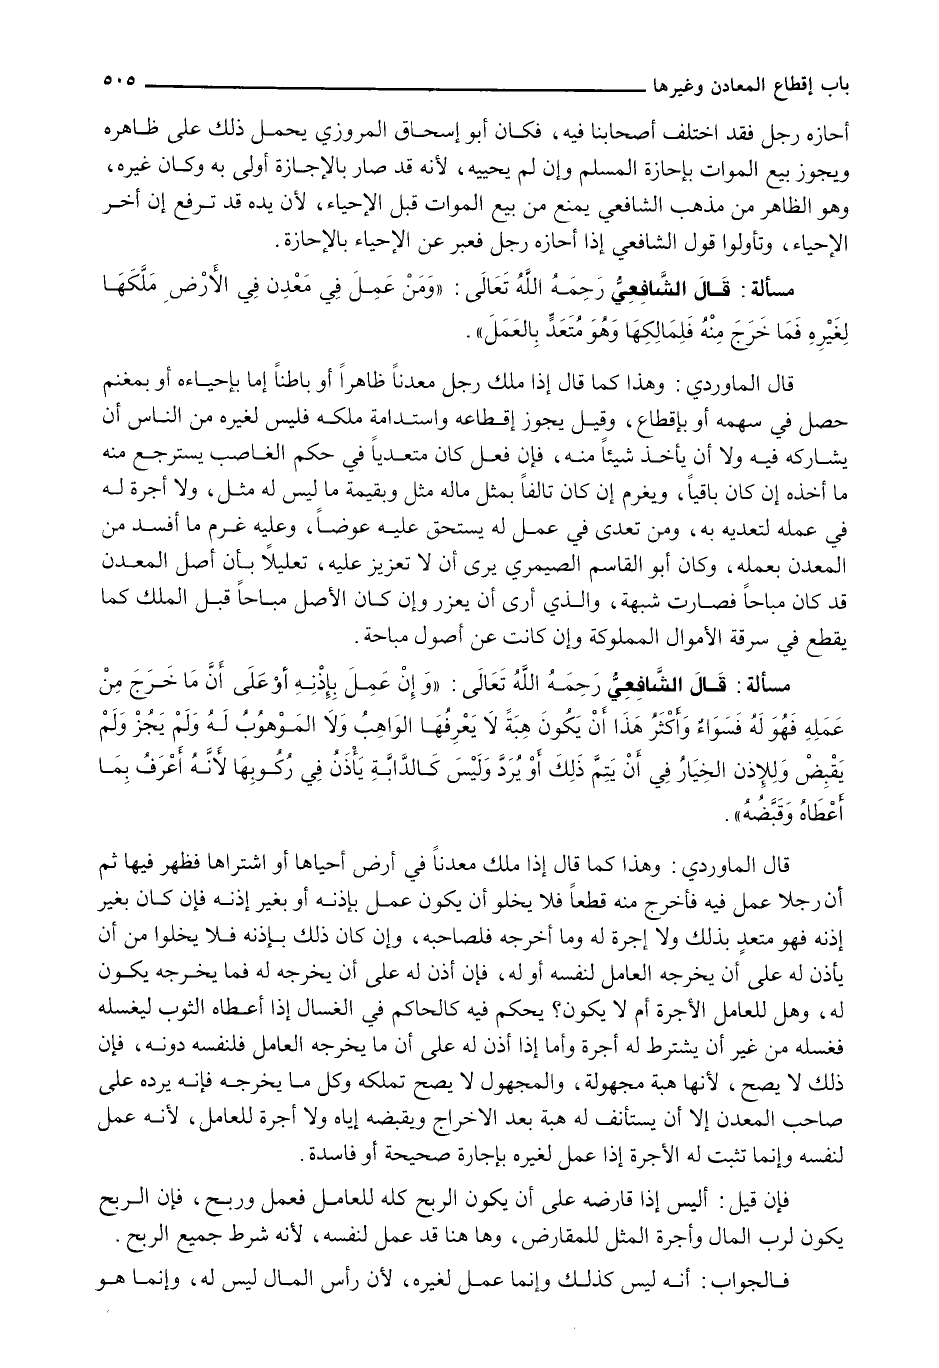 باب إقطاع المعادن وغيرها ٥٠٥
أحازه رجل فقد اختلف أصحابنا فيه، فكان أبو إسحاق المروزي يحمل ذلك على ظاهره
ويجوز بيع الموات بإحازة المسلم وإن لم يحييه، لأنه قد صار بالإجازة أولى به وكان غيره،
وهو الظاهر من مذهب الشافعي يمنع من بيع الموات قبل الإحياء، لأن يده قد ترفع إن أخر
الإحياء، وتأولوا قول الشافعي إذا أحازه رجل فعبر عن الإحياء بالإحازة.
مسألة: قَالَ الشَّافِعِيُّ رَحِمَهُ اللَّهُ تَعَالَى: «وَمَنْ عَمِلَ فِي مَعْدِنٍ فِي الْأَرْضِ مَلَّكَهَا
لِغَيْرِهِ فَمَا خَرَجَ مِنْهُ فَلِمَالِكِهَا وَهُوَ مُتَعَدٍّ بِالعَمَلِ».
قال الماوردي: وهذا كما قال إذا ملك رجل معدناً ظاهراً أو باطناً إما بإحياءه أو بمغنم
حصل في سهمه أو بإقطاع، وقيل يجوز إقطاعه واستدامة ملكه فليس لغيره من الناس أن
يشاركه فيه ولا أن يأخذ شيئاً منه، فإن فعل كان متعدياً في حكم الغاصب يسترجع منه
ما أخذه إن كان باقياً، ويغرم إن كان تالفاً بمثل ماله مثل وبقيمة ما ليس له مثل، ولا أجرة له
في عمله لتعديه به، ومن تعدى في عمل له يستحق عليه عوضاً، وعليه غرم ما أفسد من
المعدن بعمله، وكان أبو القاسم الصيمري يرى أن لا تعزيز عليه، تعليلاً بأن أصل المعدن
قد كان مباحاً فصارت شبهة، والذي أرى أن يعزر وإن كان الأصل مباحاً قبل الملك كما
يقطع في سرقة الأموال المملوكة وإن كانت عن أصول مباحة.
مسألة: قَالَ الشَّافِعِيُّ رَحِمَهُ اللَّهُ تَعَالَى: «وَإِنْ عَمِلَ بِإِذْنِهِ أَوْ عَلَى أَنَّ مَا خَرَجَ مِنْ
عَمَلِهِ فَهُوَ لَهُ فَسَوَاءٌ وَأَكْثَرُ هَذَا أَنْ يَكُونَ هِبَةً لَا يَعْرِفُهَا الوَاهِبُ وَلَا المَوْهُوبُ لَهُ وَلَمْ يَجُزْ وَلَمْ
يَقْبِضْ وَلِلإِذن الخِيَارُ فِي أَنْ يَتِمَّ ذَلِكَ أَوْ يُرَدَّ وَلَيْسَ كَالدَّابَّةِ يَأْذَنُ فِي رُكُوبِهَا لأَنَّهُ أَعْرَفُ بِمَا
أَعْطَاهُ وَقَبَّضُهُ».
قال الماوردي: وهذا كما قال إذا ملك معدناً في أرض أحياها أو اشتراها فظهر فيها ثم
أن رجلا عمل فيه فأخرج منه قطعاً فلا يخلو أن يكون عمل بإذنه أو بغير إذنه فإن كان بغير
إذنه فهو متعدٍ بذلك ولا إجرة له وما أخرجه فلصاحبه، وإن كان ذلك بإذنه فلا يخلوا من أن
يأذن له على أن يخرجه العامل لنفسه أو له، فإن أذن له على أن يخرجه له فما يخرجه يكون
له، وهل للعامل الأجرة أم لا يكون؟ يحكم فيه كالحاكم في الغسال إذا أعطاه الثوب ليغسله
فغسله من غير أن يشترط له أجرة وأما إذا أذن له على أن ما يخرجه العامل فلنفسه دونه، فإن
ذلك لا يصح، لأنها هبة مجهولة، والمجهول لا يصح تملكه وكل ما يخرجه فإنه يرده على
صاحب المعدن إلا أن يستأنف له هبة بعد الاخراج ويقبضه إياه ولا أجرة للعامل، لأنه عمل
لنفسه وإنما تثبت له الأجرة إذا عمل لغيره بإجارة صحيحة أو فاسدة.
فإن قيل: أليس إذا قارضه على أن يكون الربح كله للعامل فعمل وربح، فإن الربح
يكون لرب المال وأجرة المثل للمقارض، وها هنا قد عمل لنفسه، لأنه شرط جميع الربح.
فالجواب: أنه ليس كذلك وإنما عمل لغيره، لأن رأس المال ليس له، وإنما هو